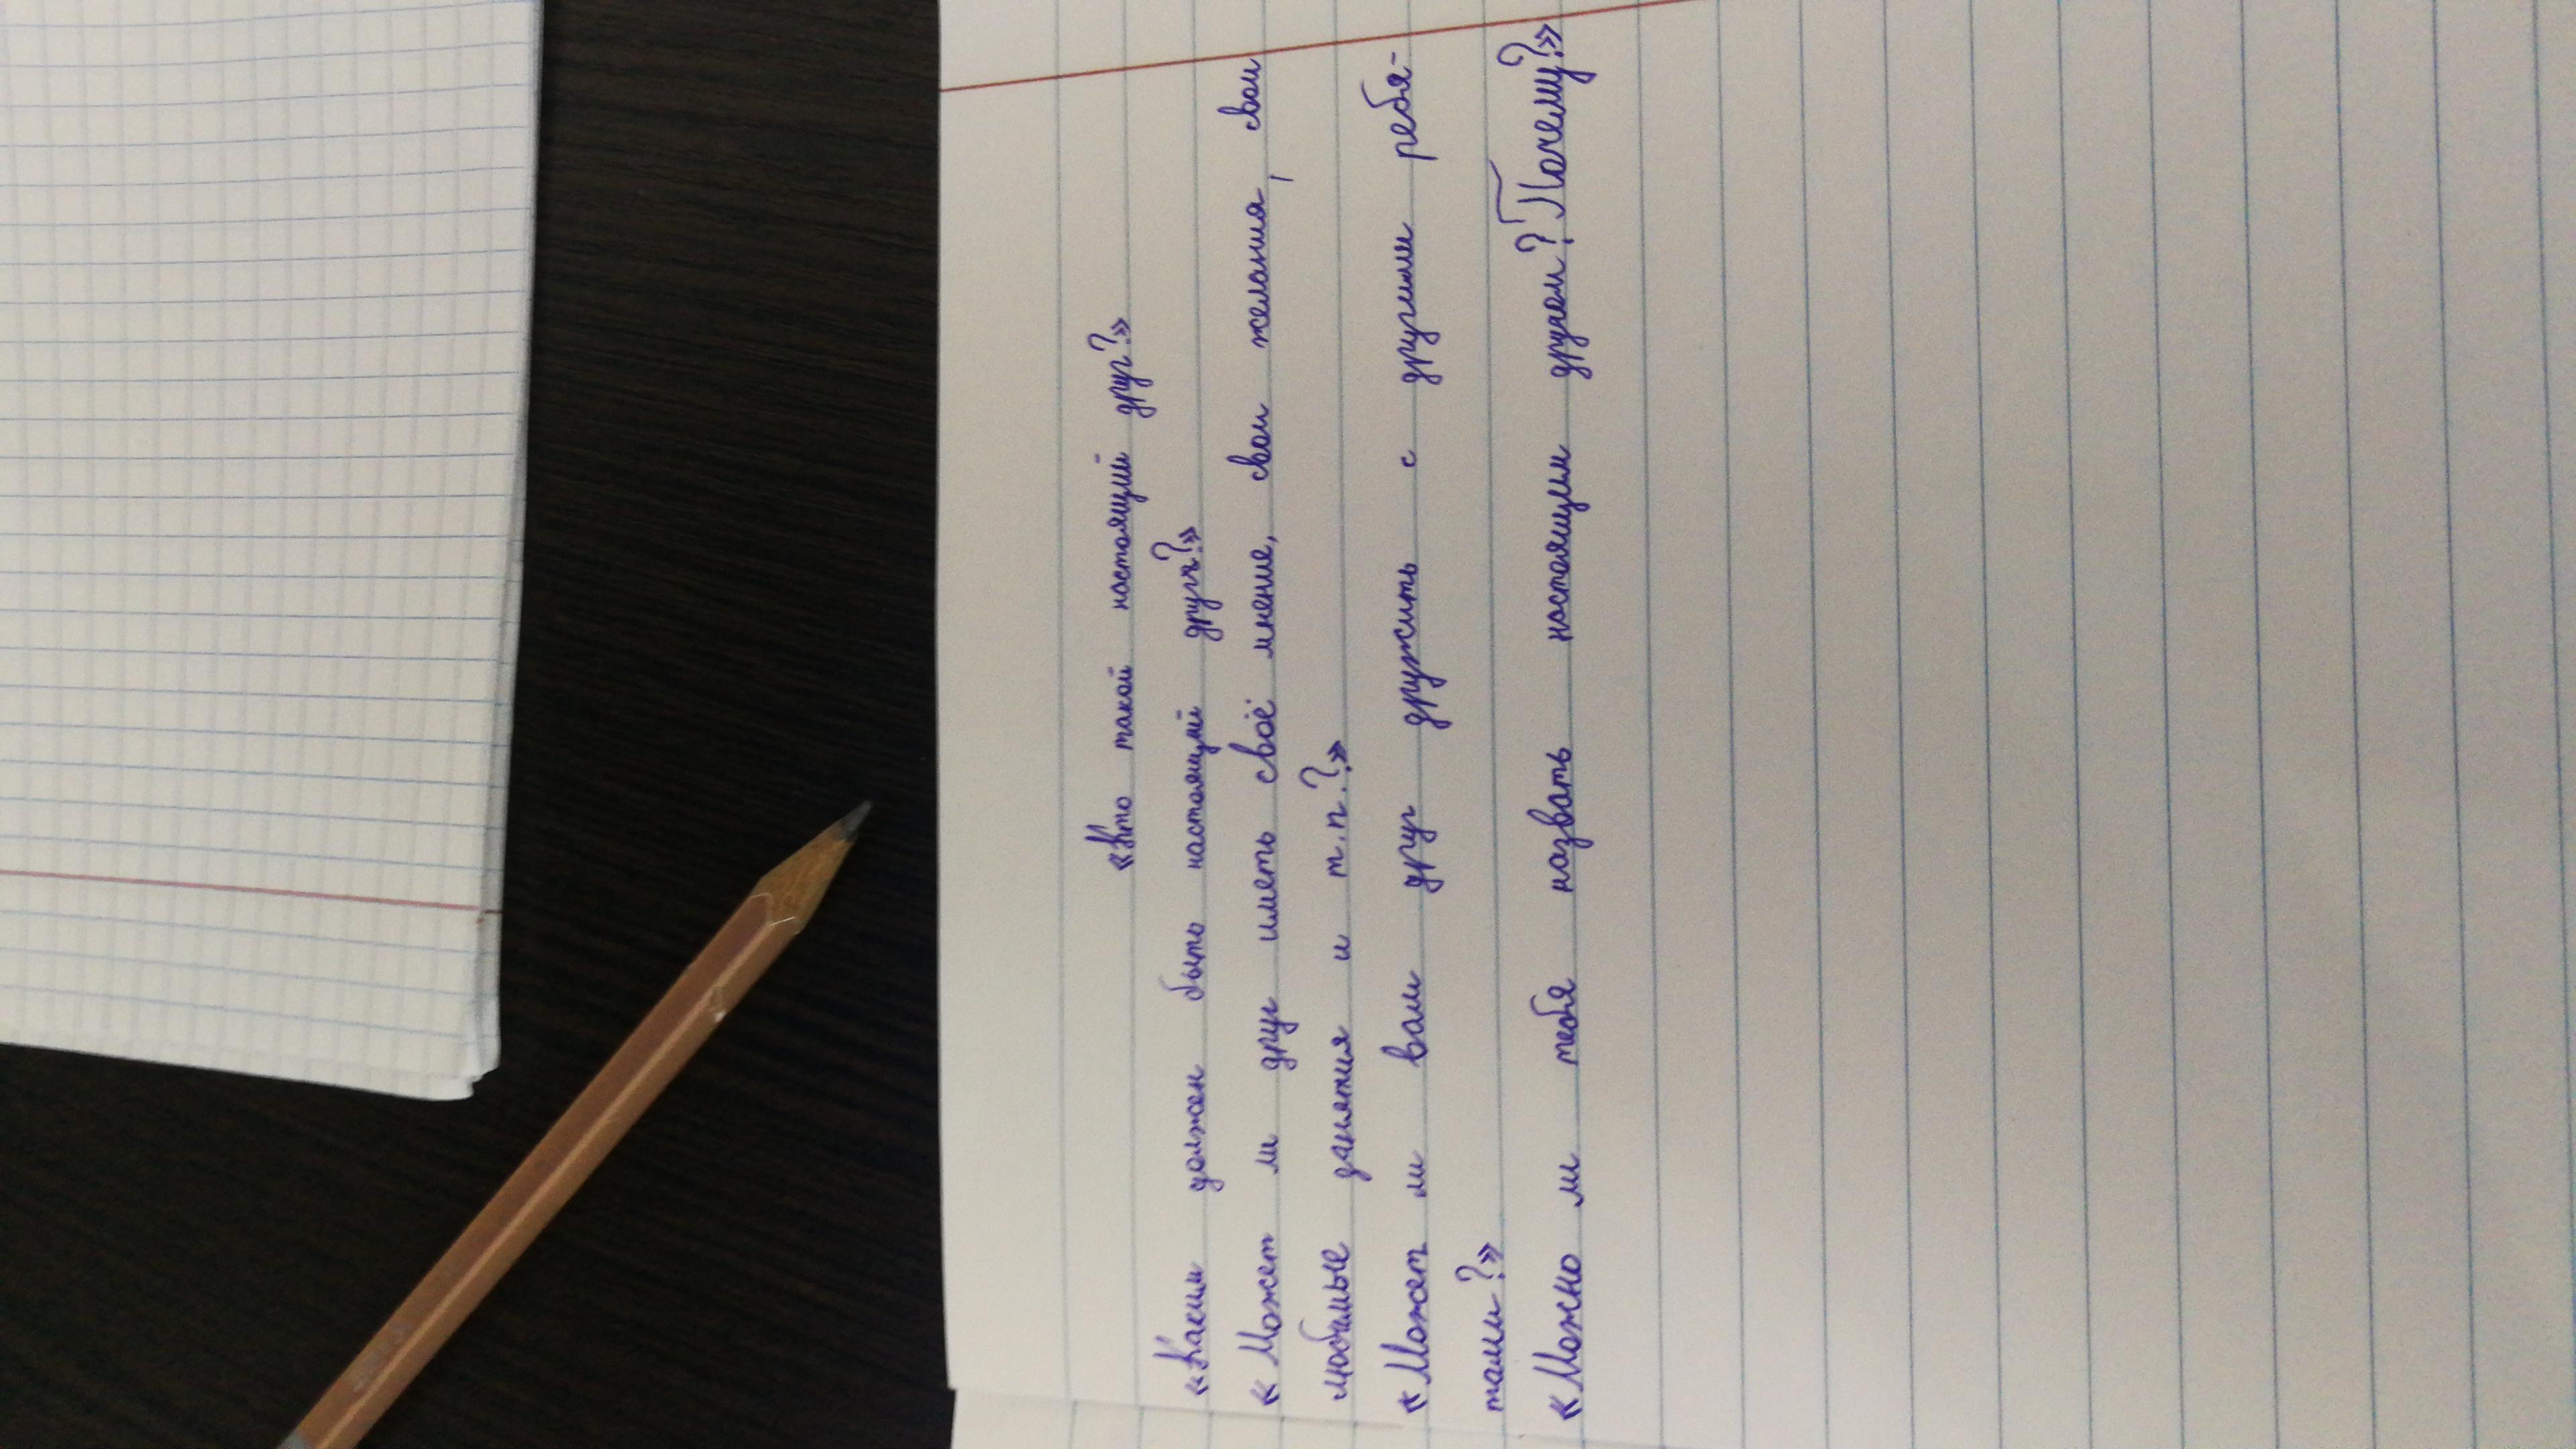 «Кто такой настоящий друг?»
«Каким должен быть настоящий друг?»
«Может ли друг иметь своё мнение, свои желания, свои
любимые занятия и т.п.?»
«Может ли ваш друг дружить с другими ребя-
тами?»
«Можно ли тебя назвать настоящим другом? Почему?»